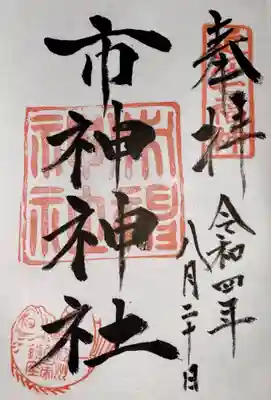 奉拝
令和四年
八月二十日
市神神社